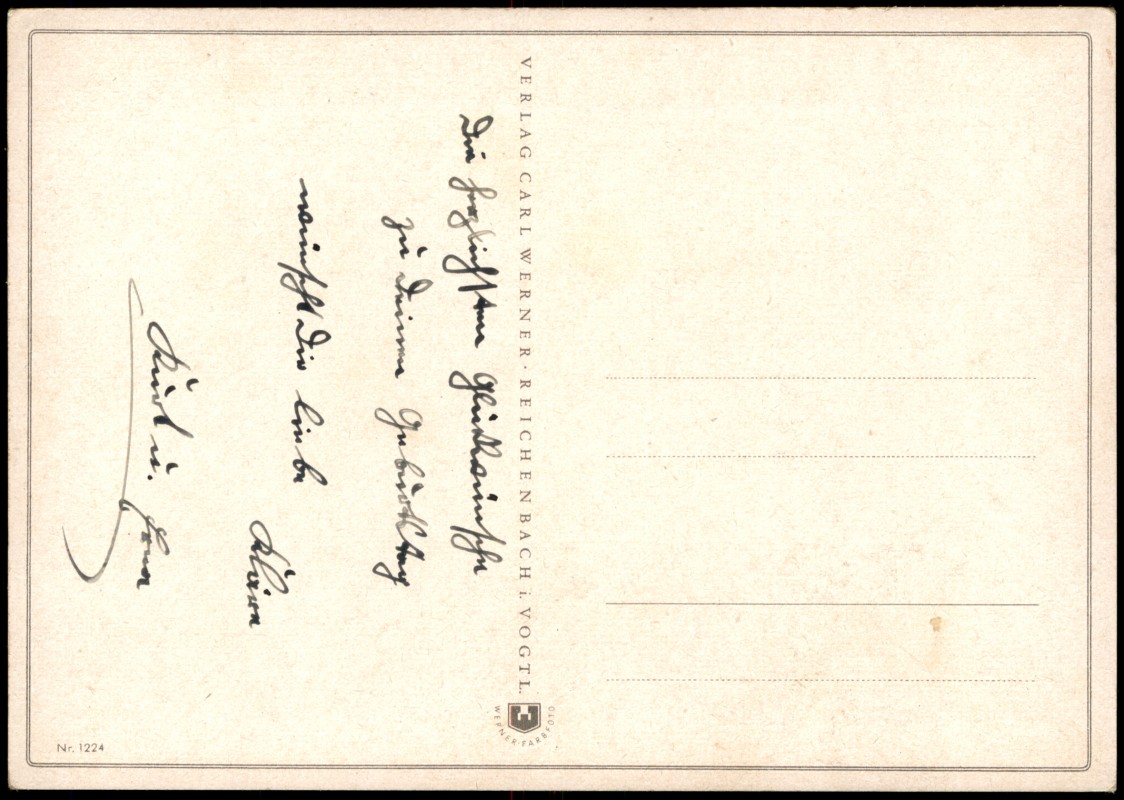 Die herzlichsten Glückwünsche
zu Deinem Geburtstag
wünscht Dir liebe
Klara
Kurt u.
VERLAG CARL WERNER · REICHENBACH i. VOGTL.
WERNER-FARBFOTO
Nr. 1224